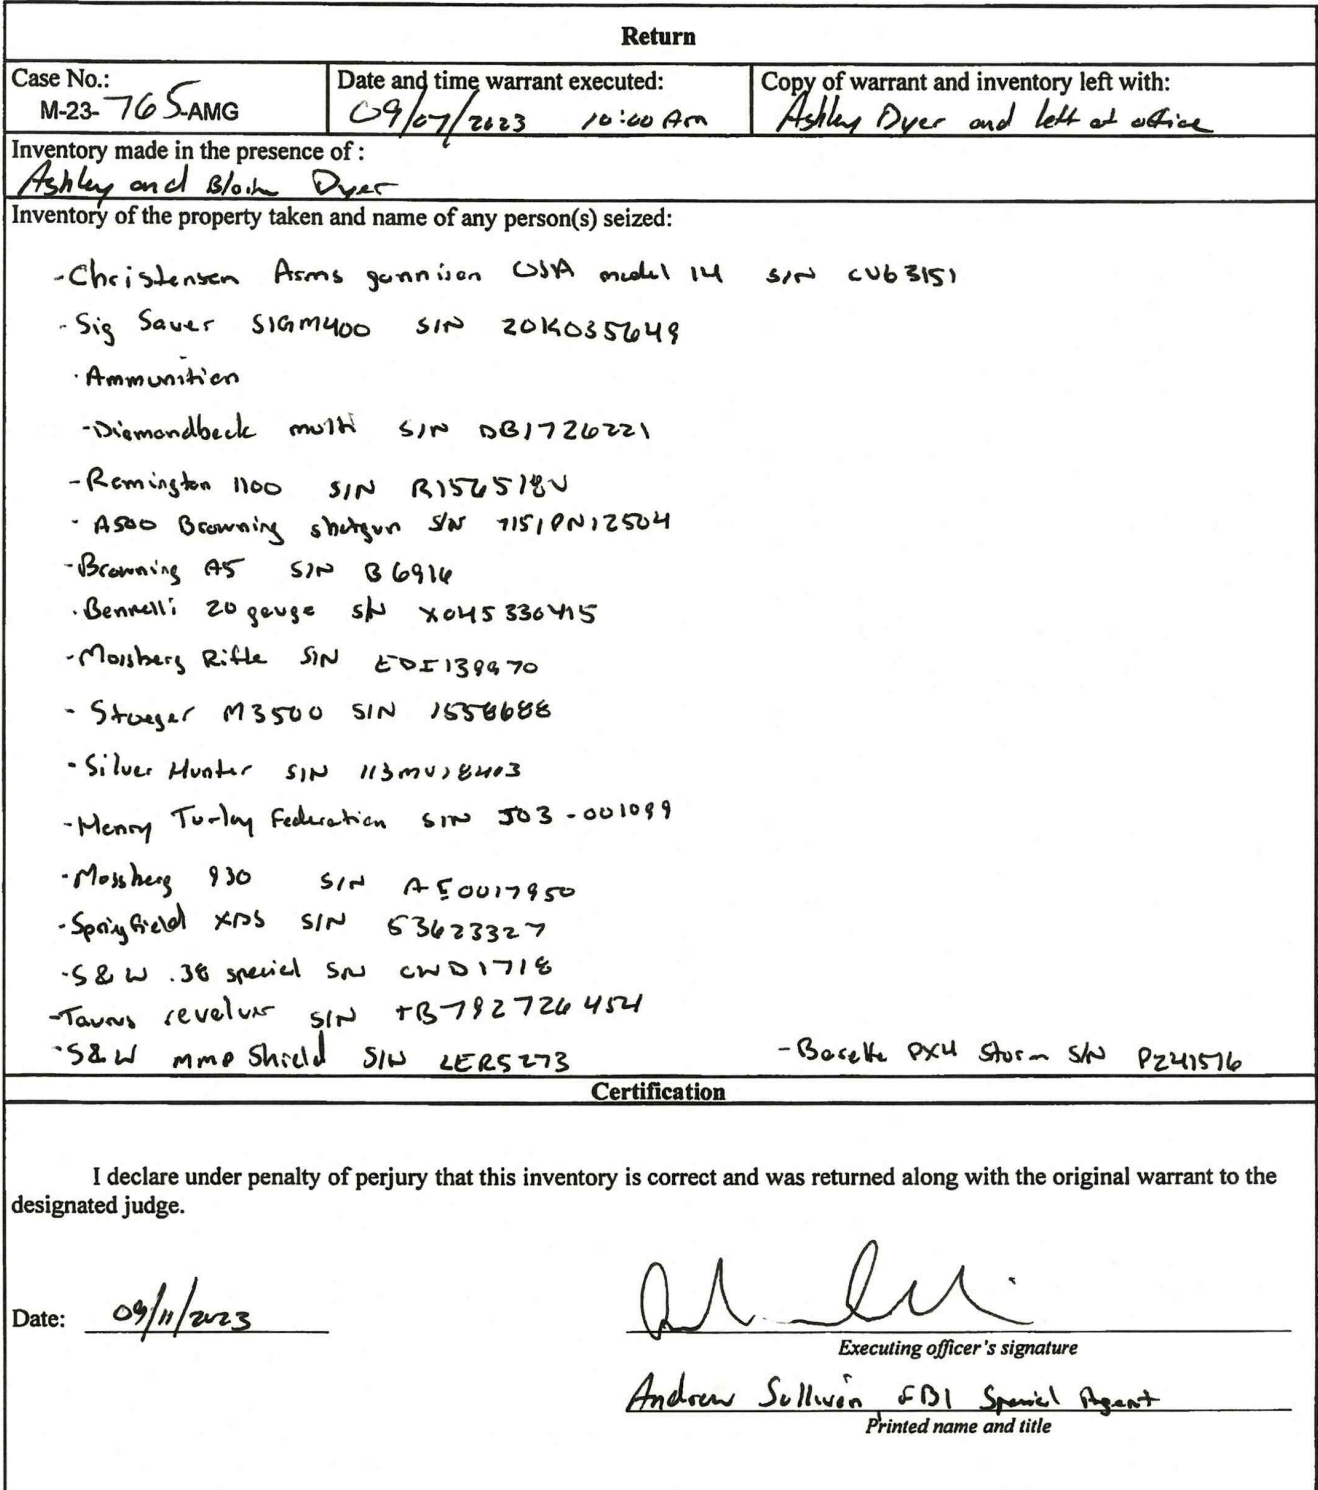 Return
Case No.: Date and time warrant executed: Copy of warrant and inventory left with:
M-23-765-AMG 09/07/2023 10:00 Am Ashley Dyer and left at office
Inventory made in the presence of :
Ashley and Dyer
Inventory of the property taken and name of any person(s) seized:
-Christensen Arms gunnison USA model 14 S/N CV63151
-Sig Sauer SIGM400 S/N 20K035649
-Ammunition
-Diamondback multi S/N DB1726221
-Remington 1100 S/N R156518V
-A500 Browning shotgun S/N 7151PN12504
-Browning A5 S/N B6916
-Bennelli 20 gauge S/N X045330415
-Mossberg Rifle S/N
-Stoeger M3500 S/N 1558688
-Silver Hunter S/N 113MV18403
-Henry Turley Federation S/N J03-001099
-Mossberg 930 S/N
-Springfield XDS S/N
-S&W .38 special SN CWD1718
-Taurus revolver S/N
-S&W Shield S/N LER5273 -Baretta PX4 Storm S/N PZ41576
Certification
I declare under penalty of perjury that this inventory is correct and was returned along with the original warrant to the
designated judge.
Date: 09/11/2023
Executing officer's signature
Andrew Sullivan FBI Special Agent
Printed name and title